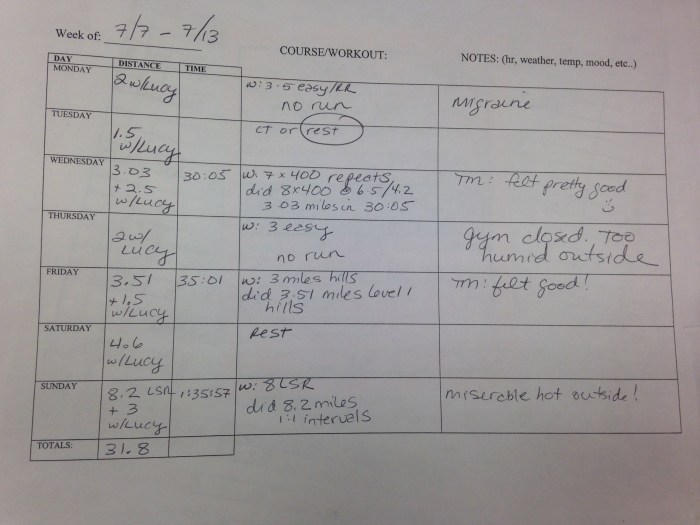 Week of: 7/7 - 7/13
COURSE/WORKOUT:
NOTES: (hr, weather, temp, mood, etc..)
DAY DISTANCE TIME
MONDAY
2 w/Lucy
w: 3.5 easy/RR
no run
Migraine
TUESDAY
1.5
w/Lucy
CT or rest
WEDNESDAY
3.03
+ 2.5
w/Lucy
30:05
w: 7 x 400 repeats,
did 8x400 @ 6.5/4.2
3.03 miles in 30:05
TM: felt pretty good
THURSDAY
2 w/
Lucy
w: 3 easy
no run
gym closed. Too
humid outside
FRIDAY
3.51
+ 1.5
w/Lucy
35:01
w: 3 miles hills
did 3.51 miles Level 1
hills
TM: felt good!
SATURDAY
4.6
w/Lucy
Rest
SUNDAY
8.2 LSR
+ 3
w/Lucy
1:35:57
w: 8 LSR
did 8.2 miles
1:1 intervals
miserable hot outside!
TOTALS: 31.8